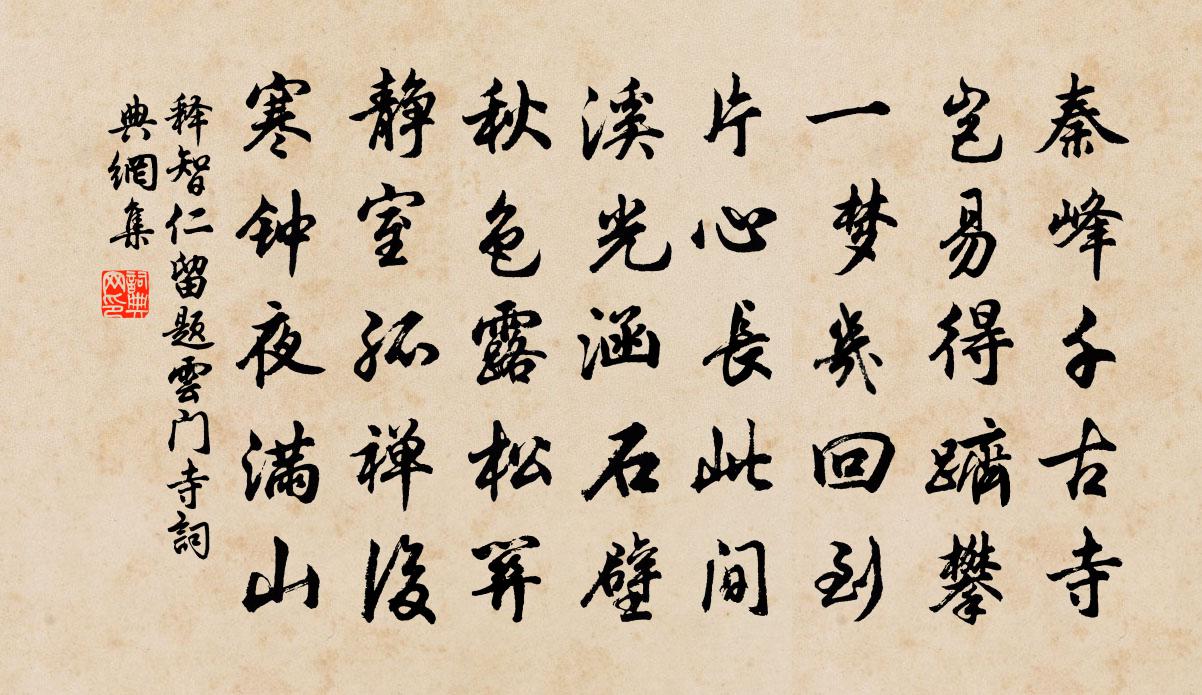 秦峰千古寺
岂易得躋攀
一梦幾回到
片心長此间
溪光涵石壁
秋色露松関
静室孤禅後
寒钟夜满山
释智仁留题雲门寺詞
典網集
詞典
网印